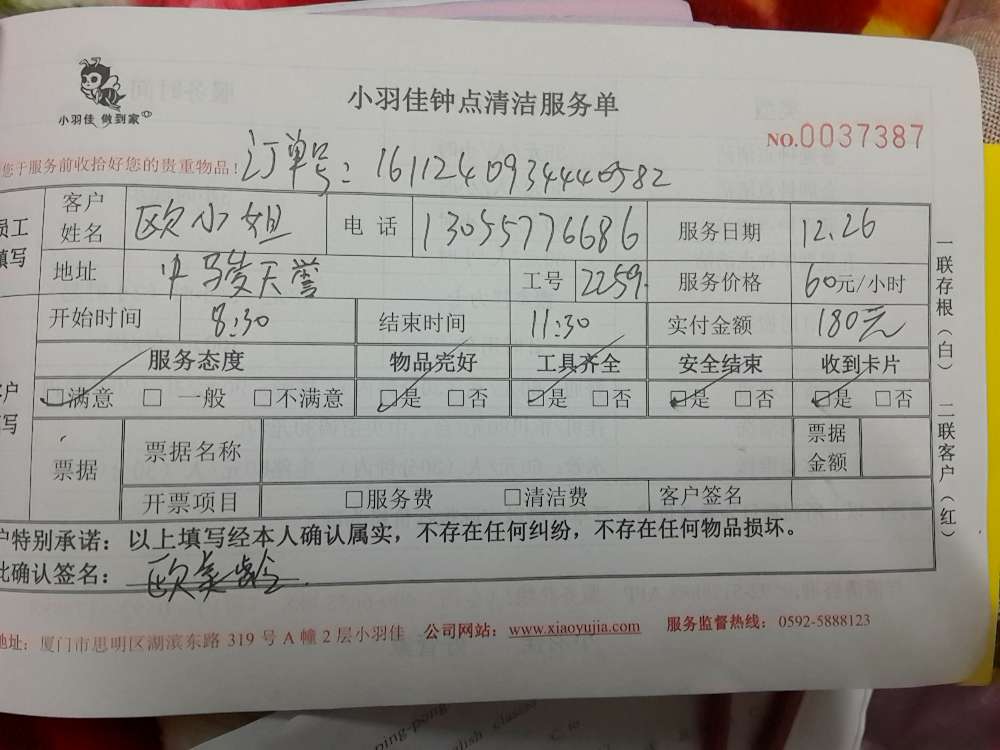 小羽佳 做到家
小羽佳钟点清洁服务单
NO.0037387
您于服务前收拾好您的贵重物品！
订单号：1611240934440582
员工填写
客户姓名 欧小姐 电话 13055776686 服务日期 12.26
地址 中骏天誉 工号 2259 服务价格 60元/小时
开始时间 8:30 结束时间 11:30 实付金额 180元
服务态度 物品完好 工具齐全 安全结束 收到卡片
☑满意 □ 一般 □不满意 ☑是 □否 ☑是 □否 ☑是 □否 ☑是 □否
票据 票据名称 票据金额
开票项目 □服务费 □清洁费 客户签名
户特别承诺：以上填写经本人确认属实，不存在任何纠纷，不存在任何物品损坏。
此确认签名：欧美龄
地址：厦门市思明区湖滨东路 319 号 A 幢 2 层小羽佳 公司网站：www.xiaoyujia.com 服务监督热线：0592-5888123
一联存根（白） 二联客户（红）